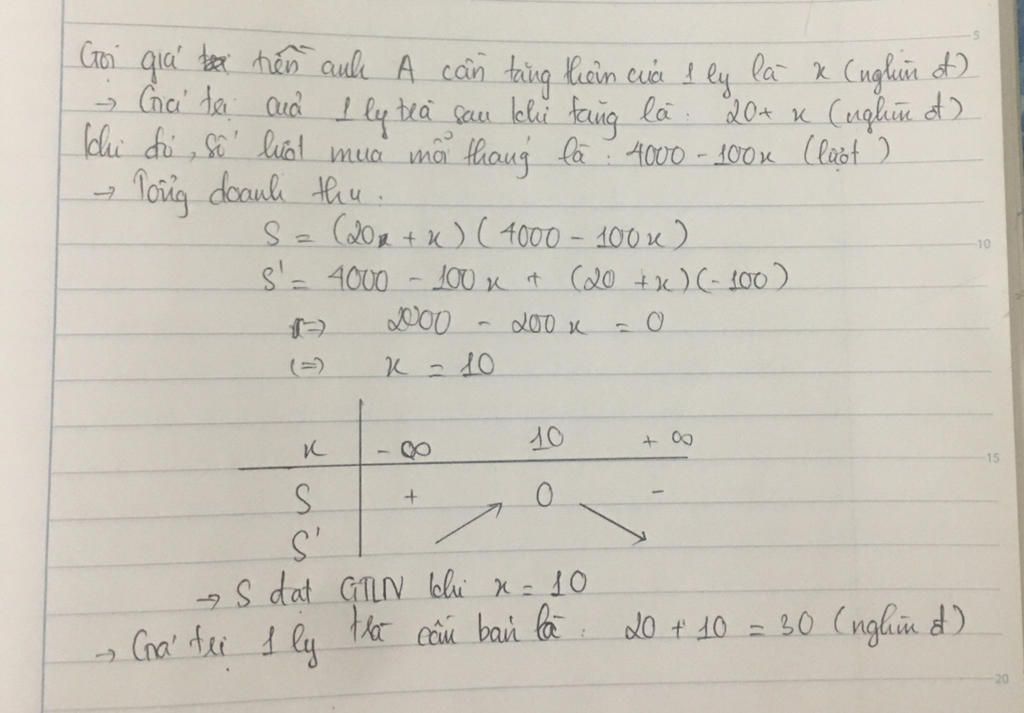 Gọi giá tiền anh A cần tăng thêm của 1 ly là x (nghìn đ)
→ Giá trị quả 1 ly trà sau khi tăng là: 20+ x (nghìn đ)
khi đó, số lượt mua mỗi tháng là: 4000 - 100x (lượt)
→ Tổng doanh thu.
S = (20 + x)(4000 - 100x)
S' = 4000 - 100x + (20 + x)(-100)
(=) 2000 - 200x = 0
(=) x = 10
x -∞ 10 +∞
S + 0 -
S'
→ S đạt GTLN khi x = 10
→ Giá trị 1 ly trà cần bán là: 20 + 10 = 30 (nghìn đ)
5
10
15
20